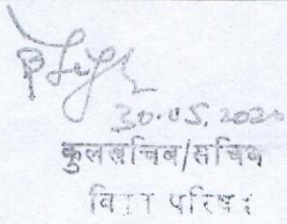 30.05.2020
कुलसचिव/सचिव
परिषद